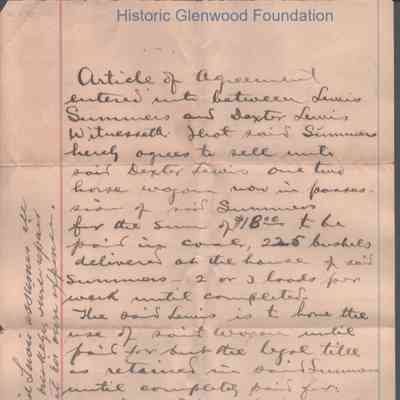 Historic Glenwood Foundation
Article of Agreement
entered into between Lewis
Summers and Dexter Lewis
Witnesseth That said Summers
herby agrees to sell unto
said Dexter Lewis one two
horse wagon now in posses-
sion of said Summers
for the sum of $18.00 to be
paid in coal, 225 bushels
delivered at the house of said
Summers - 2 or 3 loads per
week until completed
The said Lewis is to have the
use of said wagon until
paid for but the legal title
is retained in said Summers
until completely paid for.
Lewis assumes all